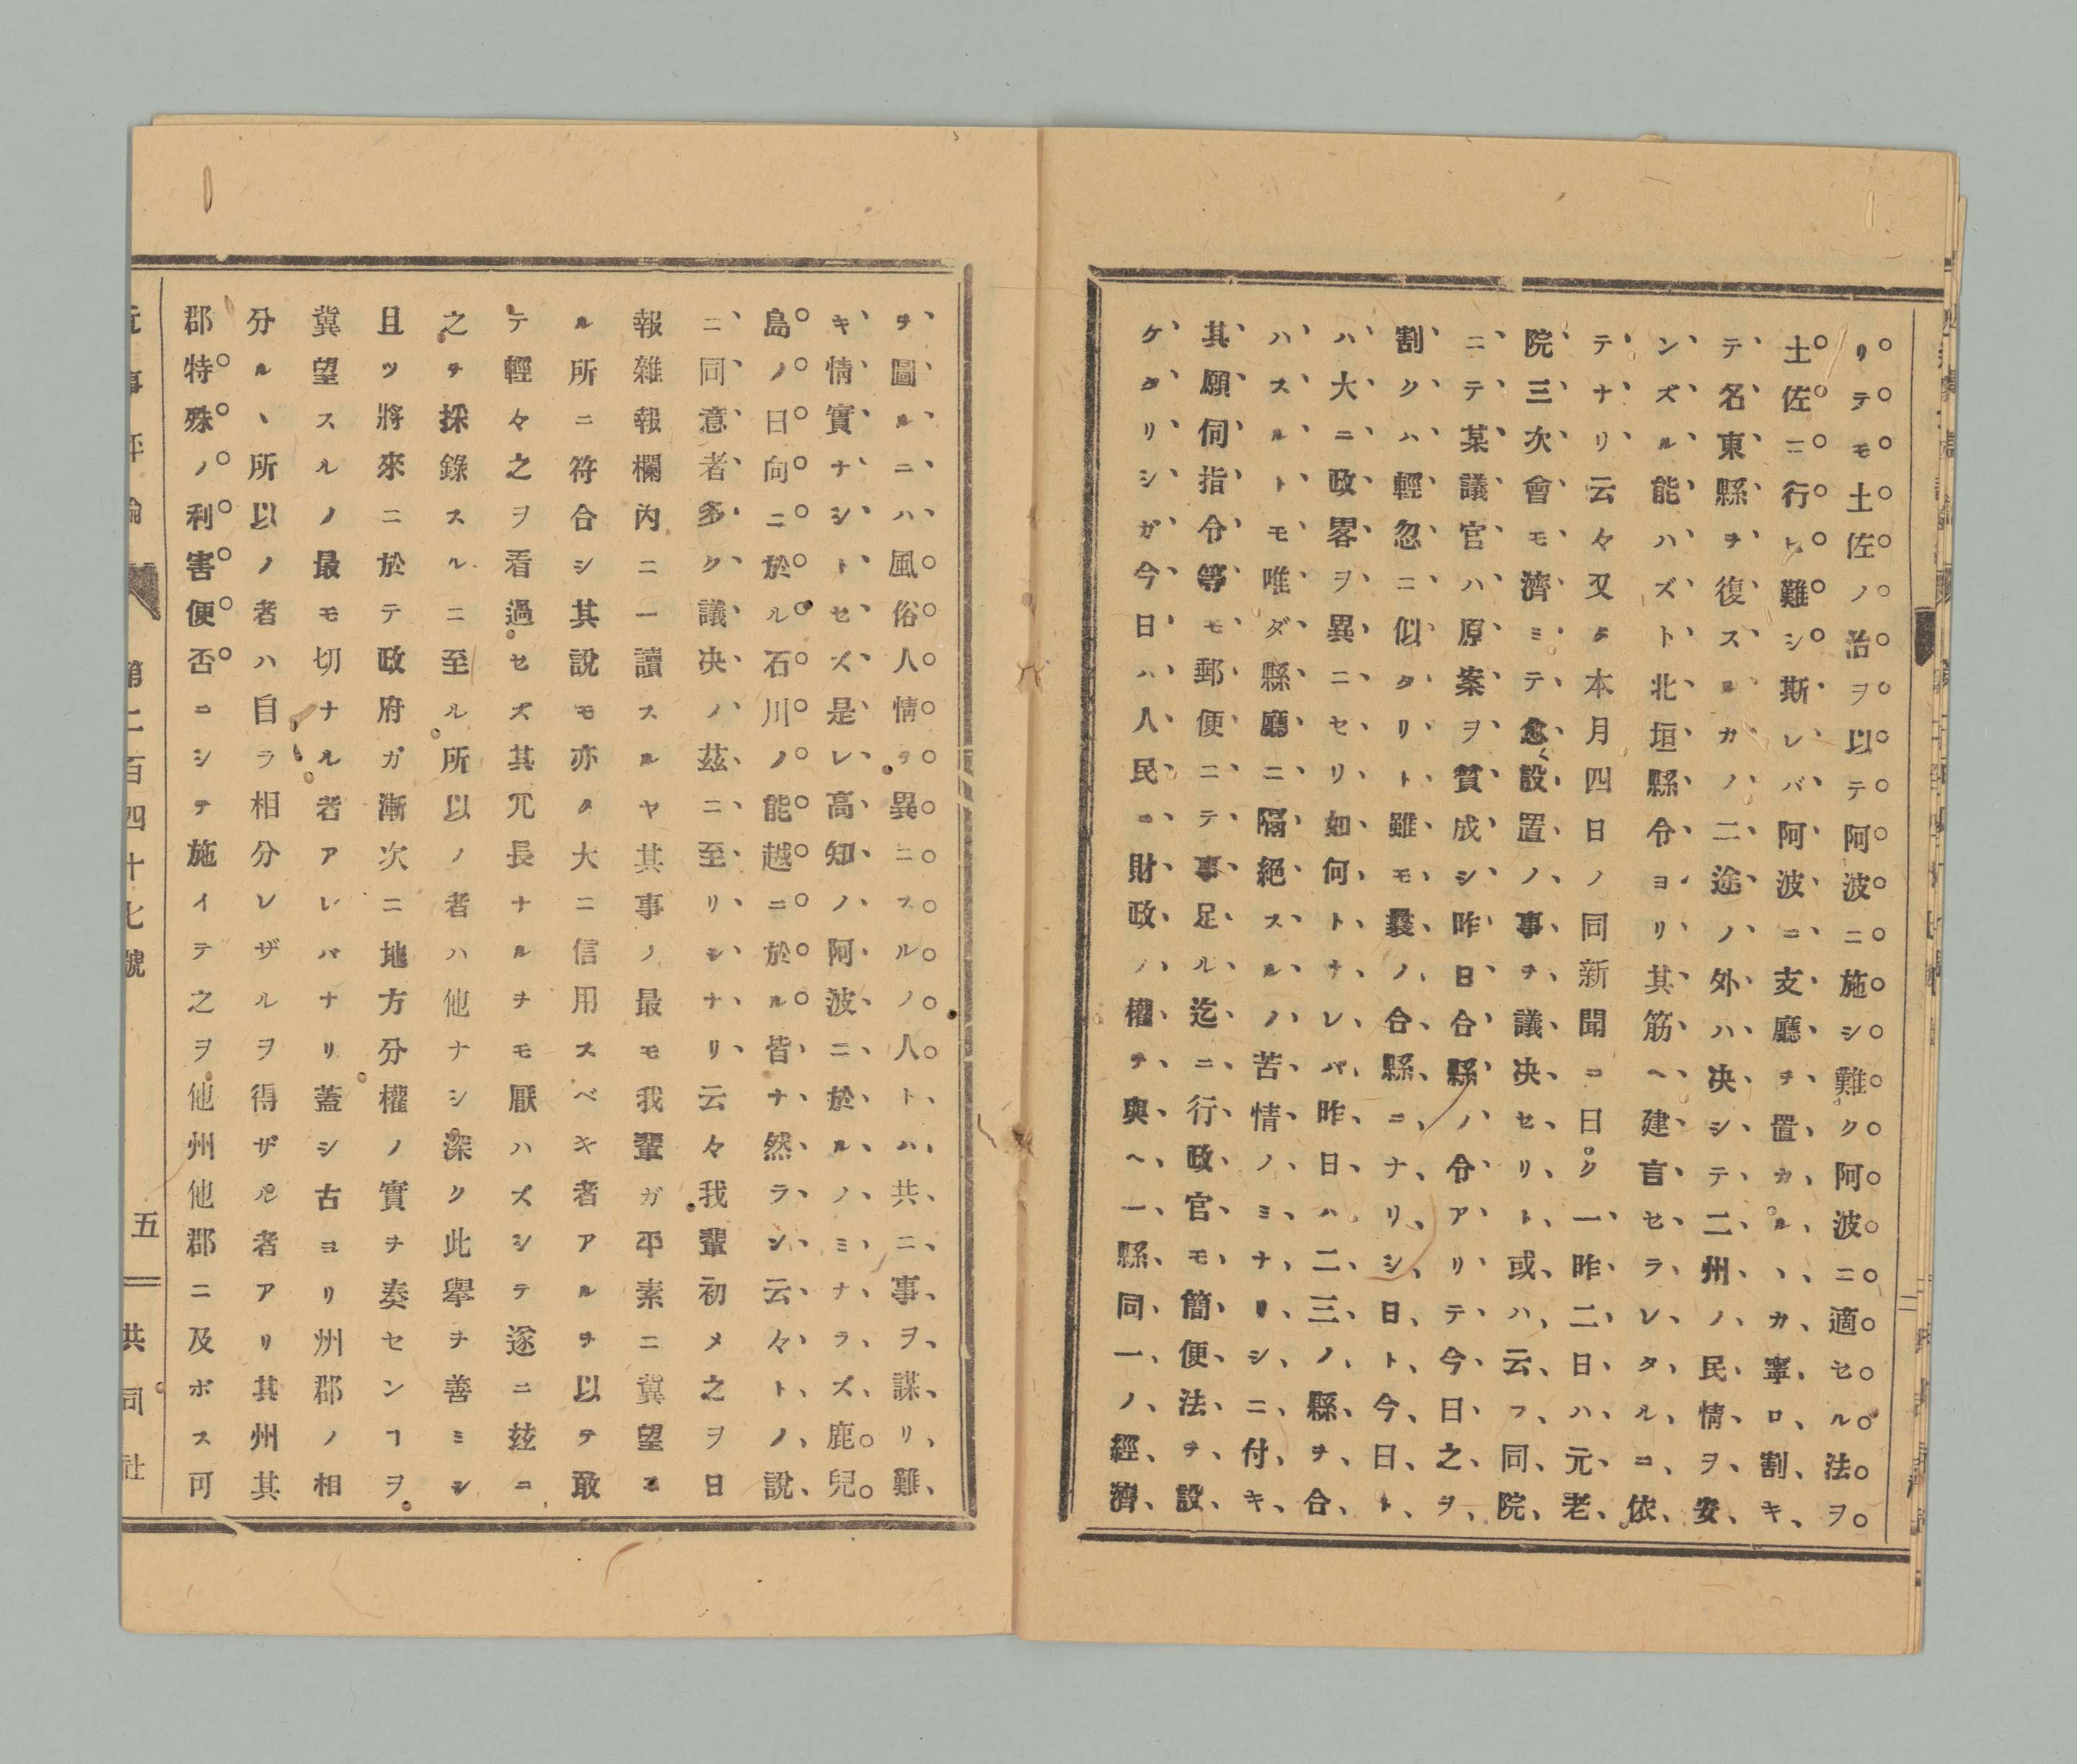 リテモ土佐ノ治ヲ以テ阿波ニ施シ難ク阿波ニ適セル法ヲ
土佐ニ行ヒ難シ斯レバ阿波ニ支廳ヲ置カルヽカ寧ロ割キ
テ名東縣ヲ復スルカノ二途ノ外ハ决シテ二州ノ民情ヲ安
ンズル能ハズト北垣縣令ヨリ其筋ヘ建言セラレタルコ依
テナリ云々又タ本月四日ノ同新聞コ曰ク一昨二日ハ元老
院三次會モ濟ミテ愈設置ノ事ヲ議决セリト或ハ云フ同院
ニテ某議官ハ原案ヲ賛成シ昨日合縣ノ令アリテ今日之ヲ
割クハ輕忽ニ似タリト雖モ曩ノ合縣コナリシ日ト今日ト
ハ大ニ政畧ヲ異ニセリ如何トナレバ昨日ハ二三ノ縣ヲ合
ハスルトモ唯ダ縣廳ニ隔絶スルノ苦情ノミナリシニ付キ
其願伺指令等モ郵便ニテ事足ル迄ニ行政官モ簡便法ヲ設
ケタリシガ今日ハ人民コ財政ノ權ヲ與ヘ一縣同一ノ經濟
ヲ圖ルニハ風俗人情ヲ異ニスルノ人トハ共ニ事ヲ謀リ難
キ情實ナシトセズ是レ高知ノ阿波ニ於ルノミナラズ鹿兒
島ノ日向ニ於ル石川ノ能越ニ於ル皆ナ然ラン云々トノ說
ニ同意者多ク議决ノ茲ニ至リシナリ云々我輩初メ之ヲ日
報雜報欄內ニ一讀スルヤ其事ノ最モ我輩ガ平素ニ冀望ス
ル所ニ符合シ其說モ亦タ大ニ信用スベキ者アルヲ以テ敢
テ輕々之ヲ看過セズ其冗長ナルヲモ厭ハズシテ遂ニ玆コ
之ヲ採錄スルニ至ル所以ノ者ハ他ナシ深ク此擧ヲ善ミシ
且ツ將來ニ於テ政府ガ漸次ニ地方分權ノ實ヲ奏センヿヲ
冀望スルノ最モ切ナル者アレバナリ蓋シ古ヨリ州郡ノ相
分ルヽ所以ノ者ハ自ラ相分レザルヲ得ザル者アリ其州其
郡特殊ノ利害便否コシテ施イテ之ヲ他州他郡ニ及ボス可
近事評論 第二百四十七號 五 共同社